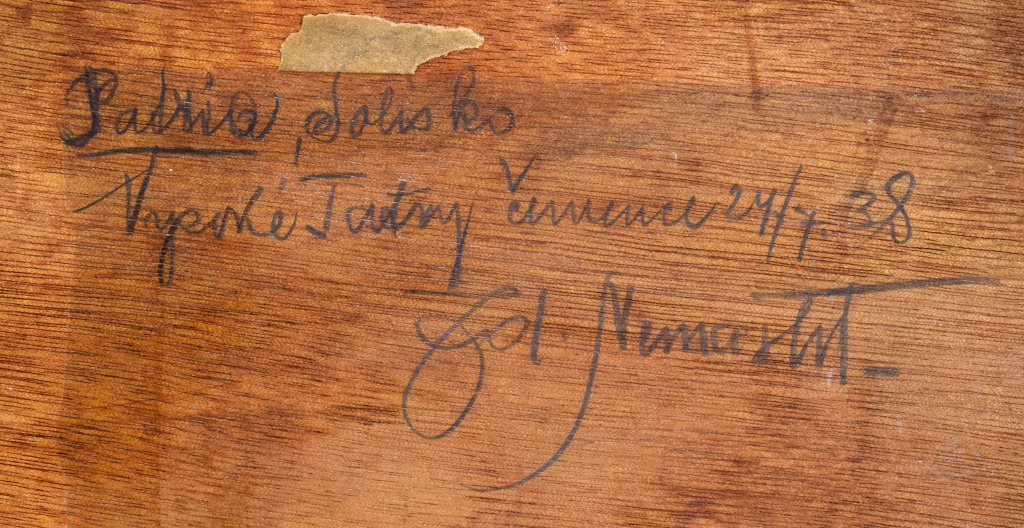 Patria, Solisko
Vysoké Tatry červenec 24/7. 38
Ed. Nemastil